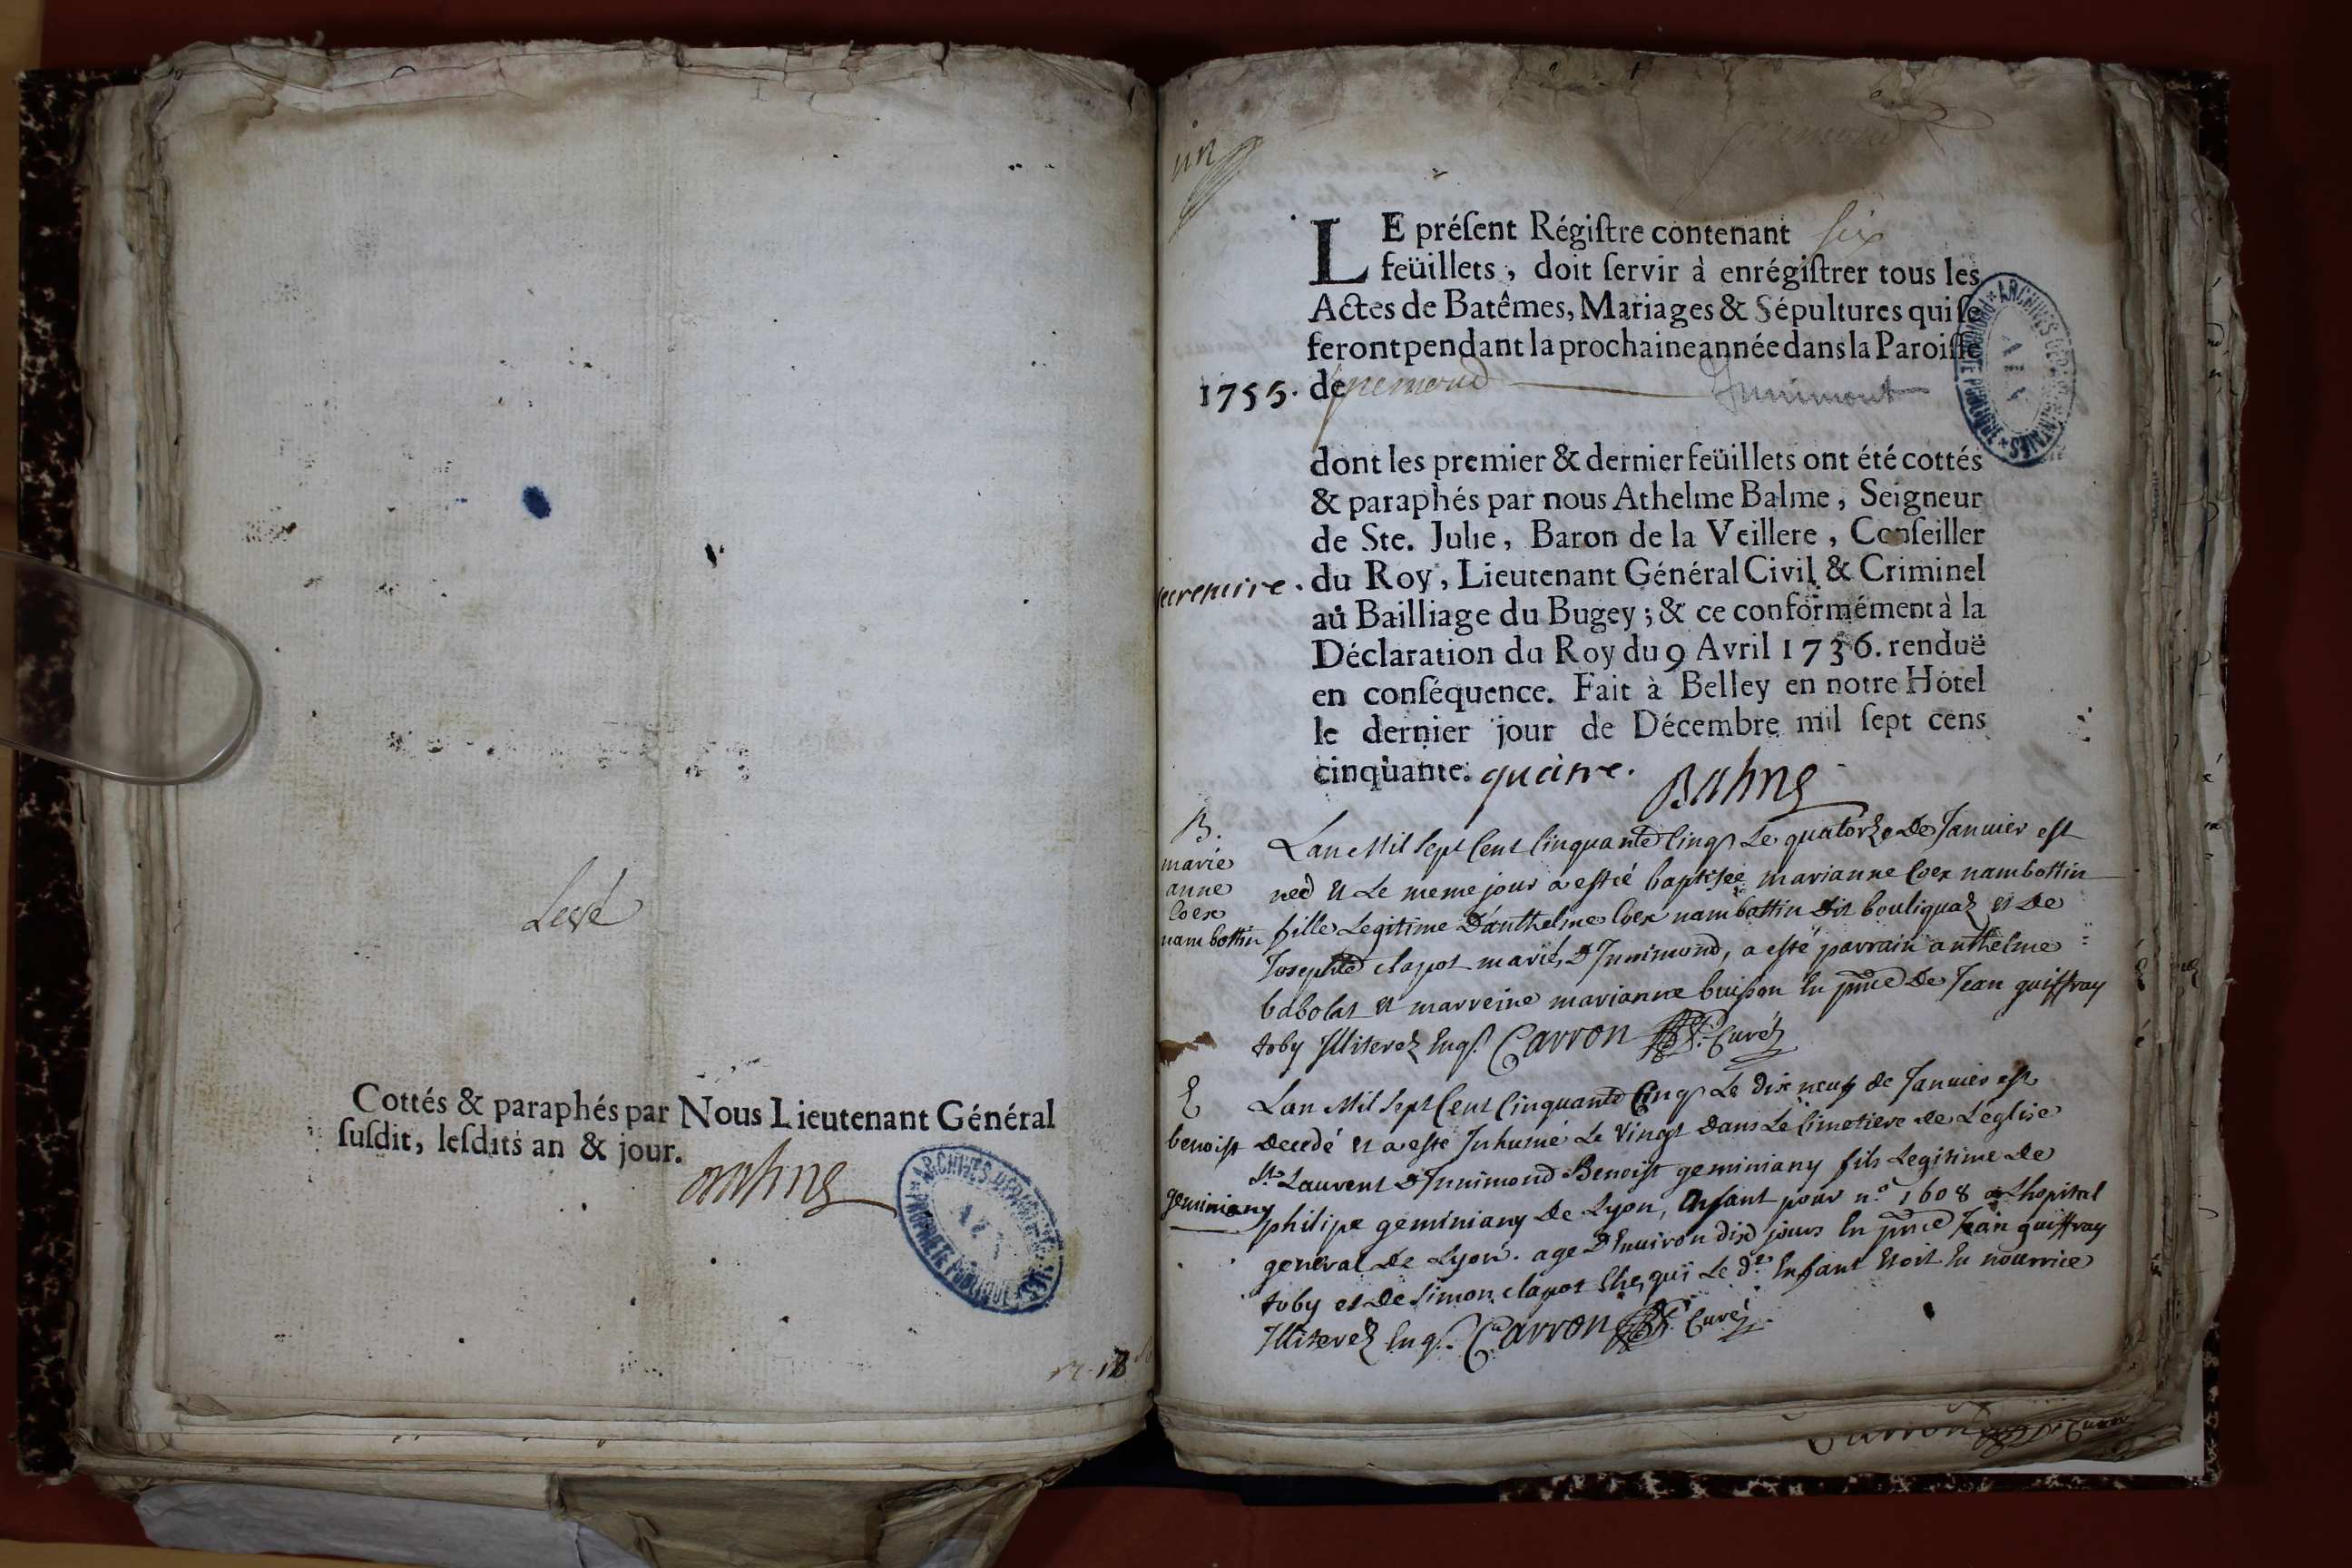 Levé
Cottés & paraphés par Nous Lieutenant Général
ſuſdit, leſdits an & jour.
Balme
ARCHIVES DÉPARTEMENTALES * PROPRIÉTÉ PUBLIQUE *
AIN
un
LE préſent Régiſtre contenant six
feüillets, doit ſervir à enrégiſtrer tous les
Actes de Batêmes, Mariages & Sépultures qui ſe
feront pendant la prochaine année dans la Paroiſſe
1755. de Jnnimont
ARCHIVES DÉPARTEMENTALES * PROPRIÉTÉ PUBLIQUE *
AIN
dont les premier & dernier feüillets ont été cottés
& paraphés par nous Athelme Balme, Seigneur
de Ste. Julie, Baron de la Veillere, Conſeiller
du Roy, Lieutenant Général Civil & Criminel
aü Bailliage du Bugey; & ce conformément à la
Déclaration du Roy du 9 Avril 1736. renduë
en conſéquence. Fait à Belley en notre Hôtel
le dernier jour de Décembre mil ſept cens
cinquante. quatre. Balme
B.
marie
anne
Coex
nambottin
Lan Mil Sept Cent Cinquante Cinq Le quatorze De Janvier est
neé et Le meme jour a estéé baptisée marianne Coex nambottin
fille Legitime D'anthelme Coex nambottin Dit bouliquaz et De
Josephte clapot mariés D'Jnnimond, a esté parrain anthelme
babolat et marreine marianne buisson En pnce De Jean guiffray
toby Jlliterez Enqs. Carron Curéz
E
benoist
geminiany
Lan Mil Sept Cent Cinquante Cinq Le dix neuf de Janvier est
Decedé et a esté Jnhumé Le Vingt Dans Le Cimetiere de L'eglise
St Laurent D'Jnnimond Benoist geminiany fils Legitime De
philipe geminiany De Lyon, Enfant pour n.o 1608 a Lhopital
general De Lyon. age D'Environ dix jours En pnce Jean guiffray
toby et De Simon clapot Chez qui Le d.t Enfant Etoit En nourrice
Jlliterez Enqs. Carron Curéz
Carron Curé